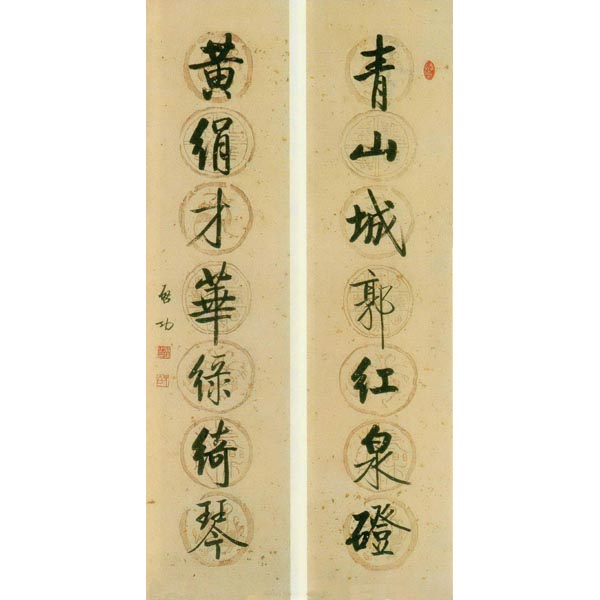 青山城郭红泉磴
黄绢才華緑綺琴
啓功